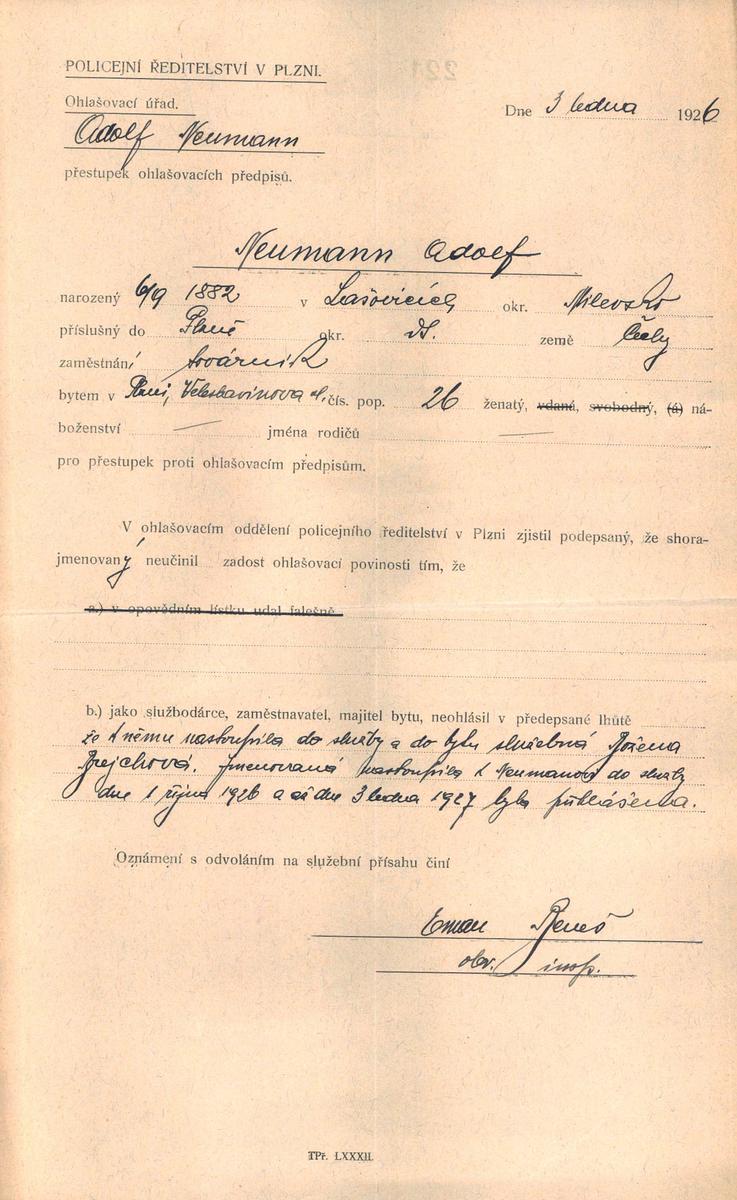 POLICEJNÍ ŘEDITELSTVÍ V PLZNI.
Ohlašovací úřad.
Dne 3 ledna 1926
Adolf Neumann
přestupek ohlašovacích předpisů.
Neumann Adolf
narozený 6/9 1882 v Lašovicích okr. Milevsko
příslušný do Plzně okr. dt. země Čechy
zaměstnání továrník
bytem v Plzni, Veleslavínova ul. čís. pop. 26 ženatý, vdaná, svobodný, (á) ná-
boženství — jména rodičů —
pro přestupek proti ohlašovacím předpisům.
V ohlašovacím oddělení policejního ředitelství v Plzni zjistil podepsaný, že shora-
jmenovaný neučinil zadost ohlašovací povinosti tím, že
a.) v opovědním lístku udal falešně
b.) jako službodárce, zaměstnavatel, majitel bytu, neohlásil v předepsané lhůtě
že k němu nastoupila do služby a do bytu služebná Božena
Brejchová. Jmenovaná nastoupila k Neumanovi do služby
dne 1 října 1926 a až dne 3 ledna 1927 byla přihlášena.
Oznámení s odvoláním na služební přísahu činí
Eman Beneš
obv. insp.
TPř. LXXXII.